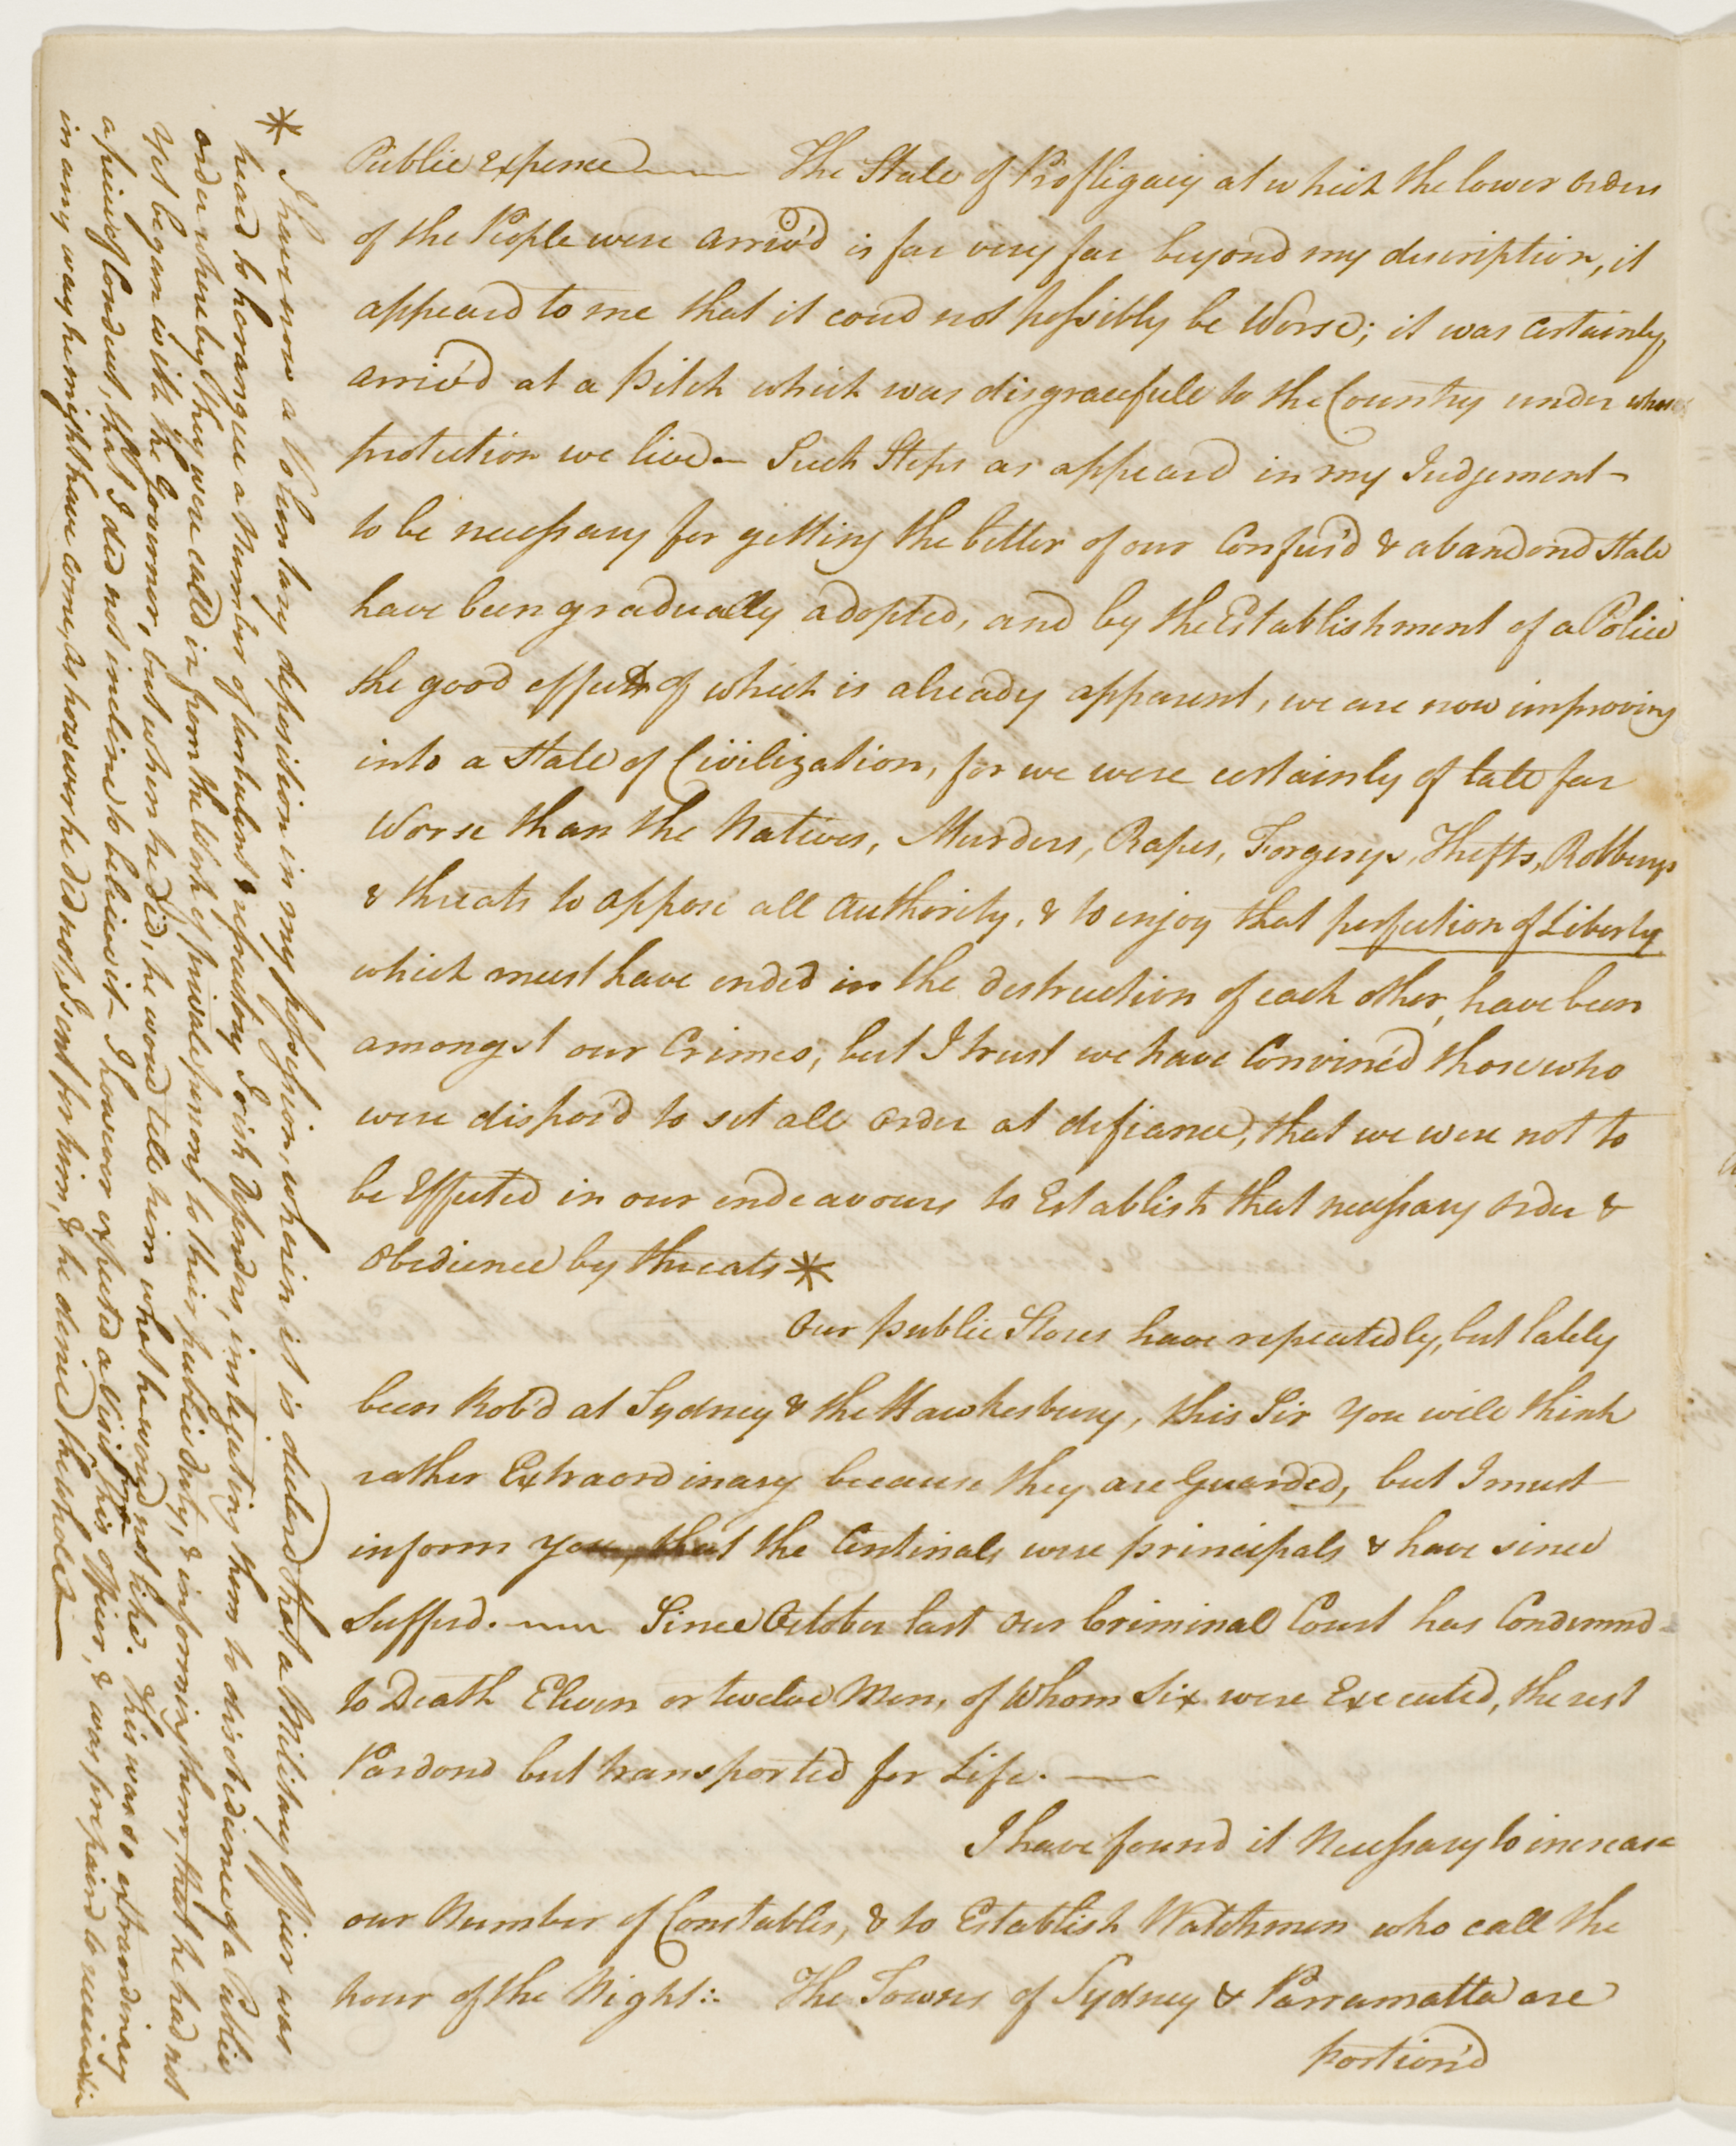 Public expence —— The State of Profligacy at which the lower orders
of the People were arriv'd is far very far beyond my description, it
appeard to me that it coud not possibly be worse; it was certainly
arriv'd at a pitch which was disgracefull to the Country under whose
protection we live.— Such Steps as appeard in my Judgement
to be necessary for getting the better of our Confus'd & abandond State
have been gradually adopted, and by the Establishment of a Police
the good effects of which is already apparent, we are now improving
into a State of Civilization, for we were certainly of late far
Worse than the Natives, Murders, Rapes, Forgerys, Thefts, Robberys
& threats to oppose all Authority, & to enjoy that perfection of Liberty
which must have ended in the destruction of each other, have been
amongst our Crimes; but I trust we have Convinc'd those who
were dispos'd to set all order at defiance, that we were not to
be Effected in our endeavours to Establish that necessary order &
obedience by threats *
Our public Stores have repeatedly, but lately
been Rob'd at Sydney & the Hawkesbury, this Sir you will think
rather Extraordinary because they are Guarded, but I must
inform you, that the Centinals were principals & have since
Sufferd. —— Since October last our Criminal Court has Condemnd
to Death Eleven or twelve Men, of whom Six were Executed, the rest
Pardond but transported for Life. ——
I have found it Necessary to increase
our Number of Constables, & to Establish Watchmen who call the
hour of the Night:. The Towns of Sydney & Parramatta are
portion'd
* I have now a Voluntary deposition in my possession, wherein it is declared that a Military officer was
heard to harangue a Number of turbulent & refractory Irish Defenders, instigating them to disobedience of a Public
order whereby they were calld in from the Work of private persons to their public duty, & informing them, that he had not
yet began with the Governor, but when he did, he woud tell him what he woud not like. This was so extraordinary
a piece of Conduct, that I did not incline to believe it. I however expected a Visit from this officer, & was prepaird to receive him
in any way he might have come, as however he did not, I sent for him, & he denied the whole. —